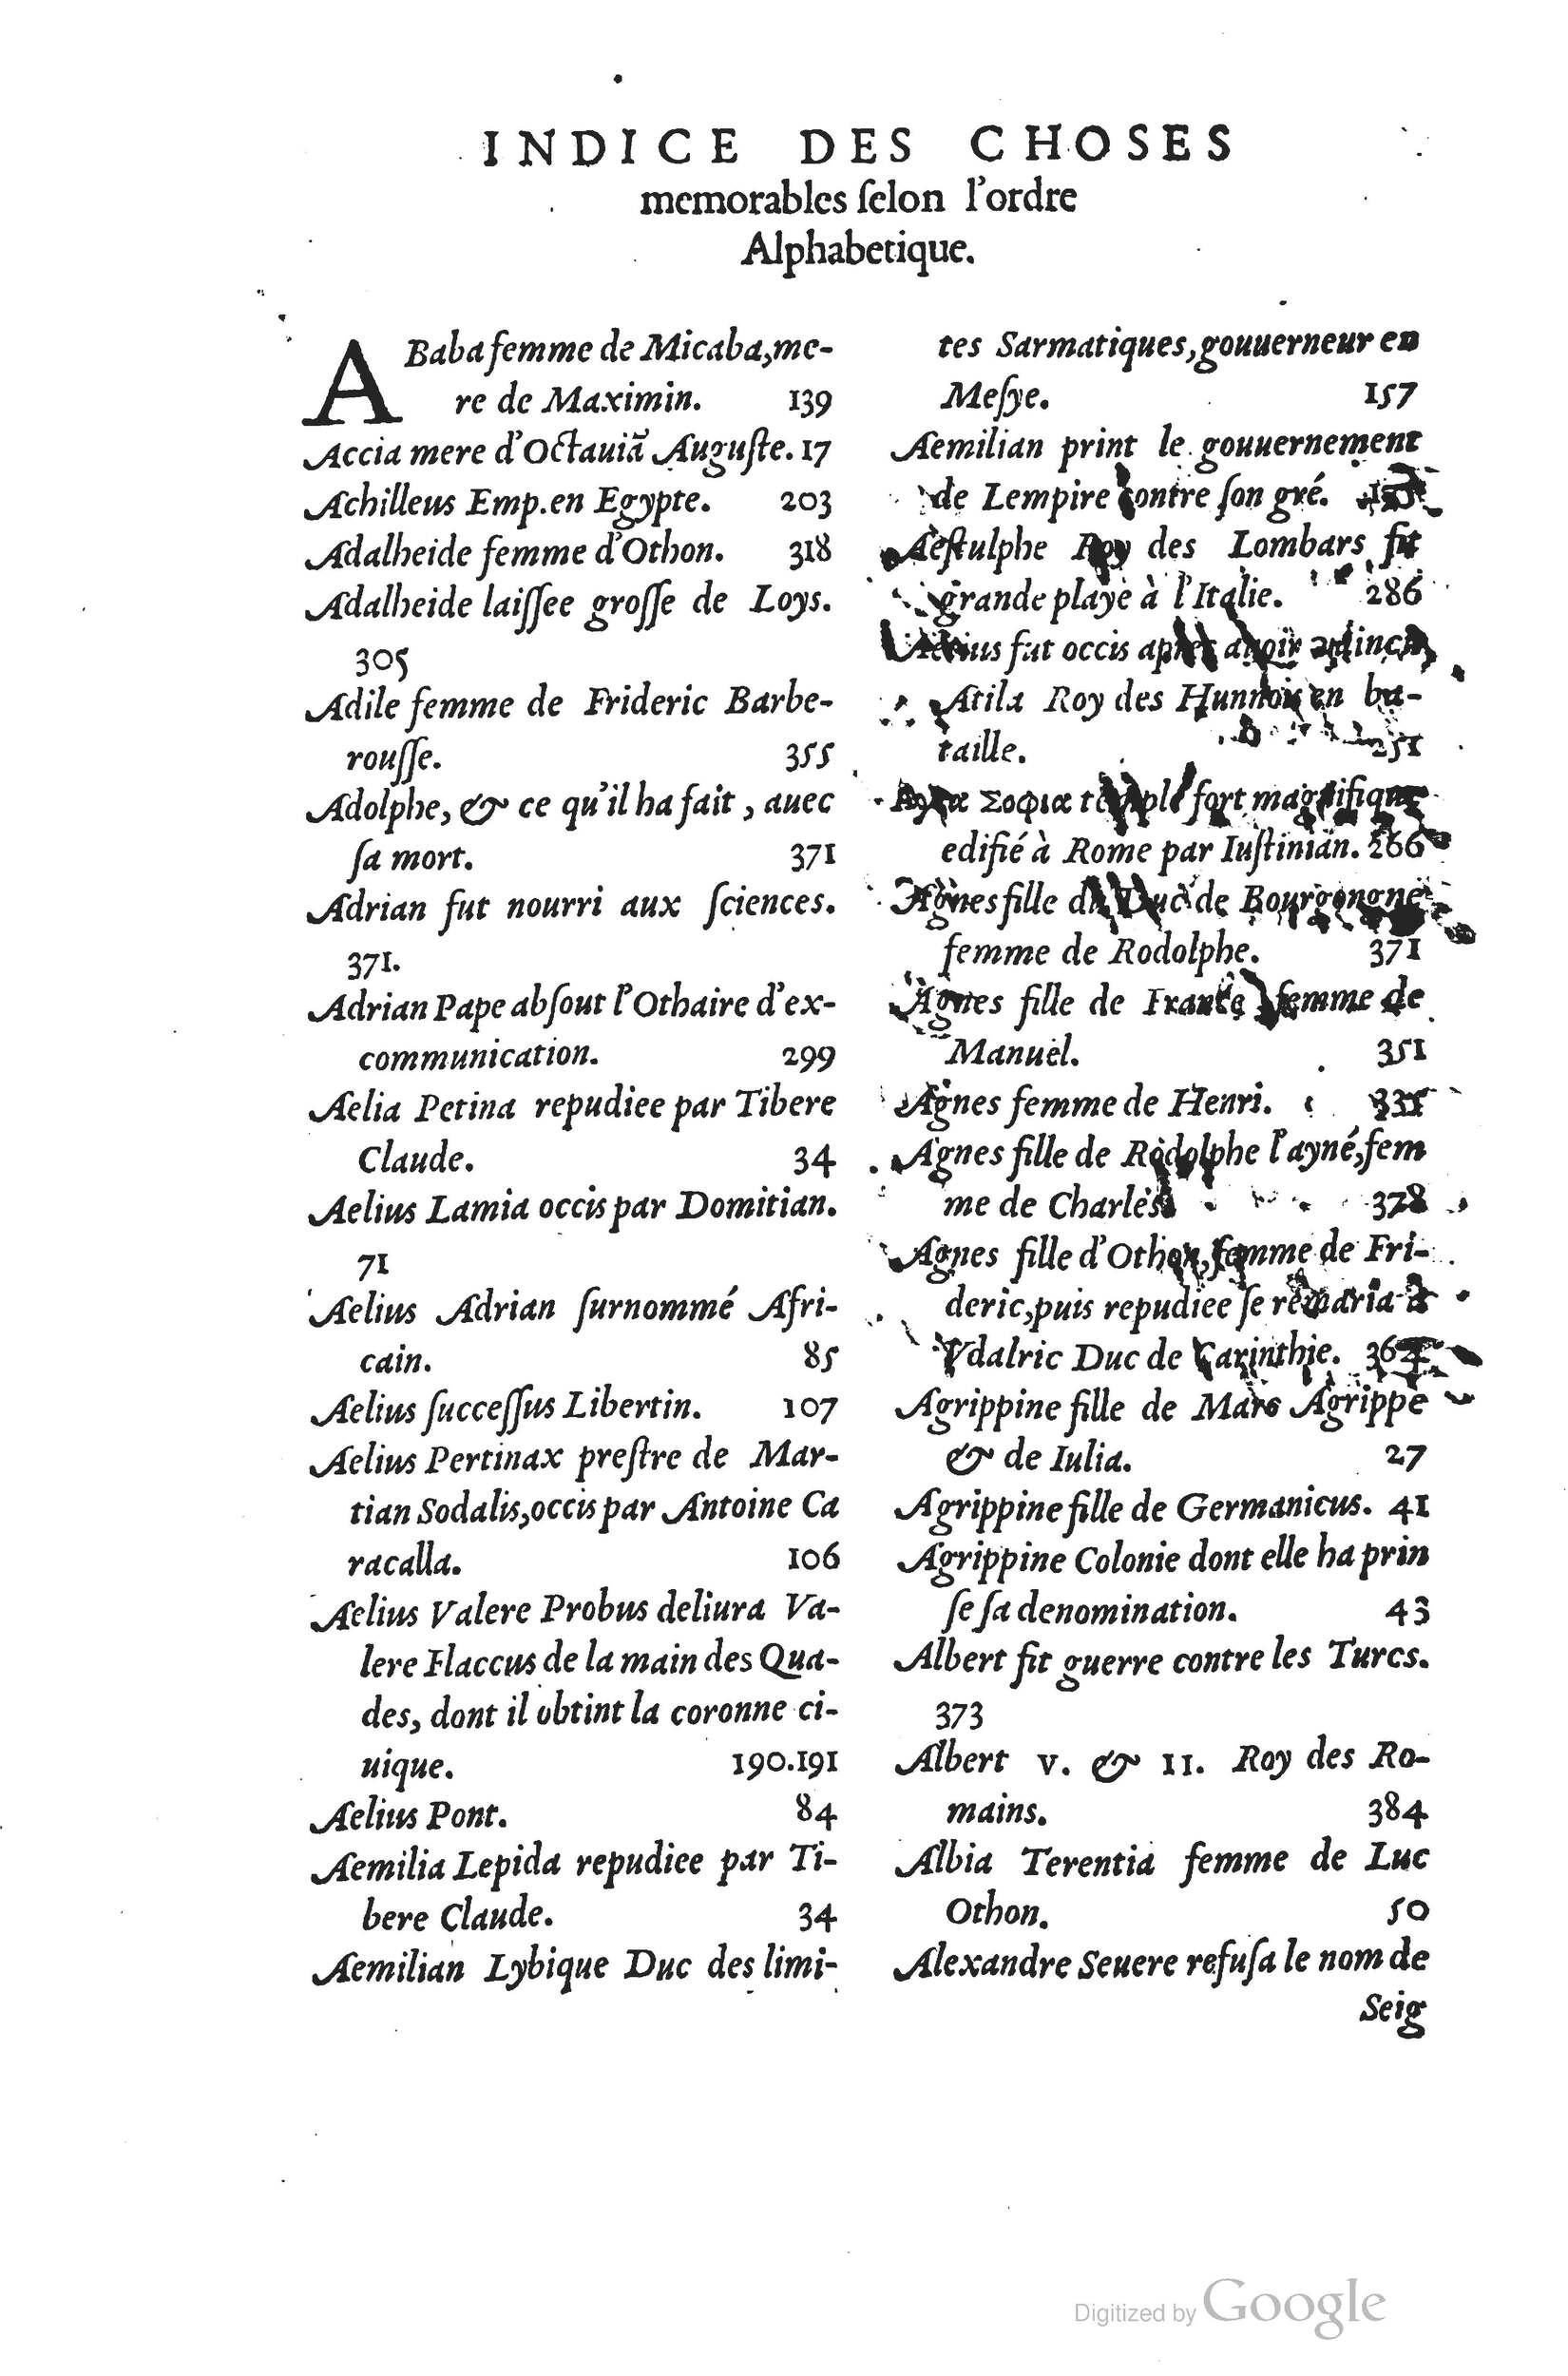 INDICE DES CHOSES
memorables ſelon l'ordre
Alphabetique.
ABaba femme de Micaba, me-
re de Maximin. 139
Accia mere d'Octauiã Auguſte. 17
Achilleus Emp. en Egypte. 203
Adalheide femme d'Othon. 318
Adalheide laiſſee groſſe de Loys.
305
Adile femme de Frideric Barbe-
rouſſe. 355
Adolphe, & ce qu'il ha fait, auec
ſa mort. 371
Adrian fut nourri aux ſciences.
371.
Adrian Pape abſout l'Othaire d'ex-
communication. 299
Aelia Petina repudiee par Tibere
Claude. 34
Aelius Lamia occis par Domitian.
71
Aelius Adrian ſurnommé Afri-
cain. 85
Aelius ſucceſſus Libertin. 107
Aelius Pertinax preſtre de Mar-
tian Sodalis, occis par Antoine Ca
racalla. 106
Aelius Valere Probus deliura Va-
lere Flaccus de la main des Qua-
des, dont il obtint la coronne ci-
uique. 190.191
Aelius Pont. 84
Aemilia Lepida repudiee par Ti-
bere Claude. 34
Aemilian Lybique Duc des limi-
tes Sarmatiques, gouuerneur en
Meſye. 157
Aemilian print le gouuernement
de Lempire contre ſon gré.
Aeſtulphe Roy des Lombars fit
grande playe à l'Italie. 286
fut occis apres auoir
Atila Roy des Hunnois en ba-
taille. 251
Αγια Σοφια temple fort magnifique
edifié à Rome par Iuſtinian. 266
Agnes fille du Duc de Bourgongne
femme de Rodolphe. 371
Agnes fille de France femme de
Manuel. 351
Agnes femme de Henri.
Agnes fille de Rodolphe l'ayné, fem
me de Charles 378
Agnes fille d'Othon, femme de Fri-
deric, puis repudiee ſe remaria à
Vdalric Duc de Carinthie.
Agrippine fille de Marc Agrippe
& de Iulia. 27
Agrippine fille de Germanicus. 41
Agrippine Colonie dont elle ha prin
ſe ſa denomination. 43
Albert fit guerre contre les Turcs.
373
Albert V. & II. Roy des Ro-
mains. 384
Albia Terentia femme de Luc
Othon. 50
Alexandre Seuere refuſa le nom de
Seig
Digitized by Google